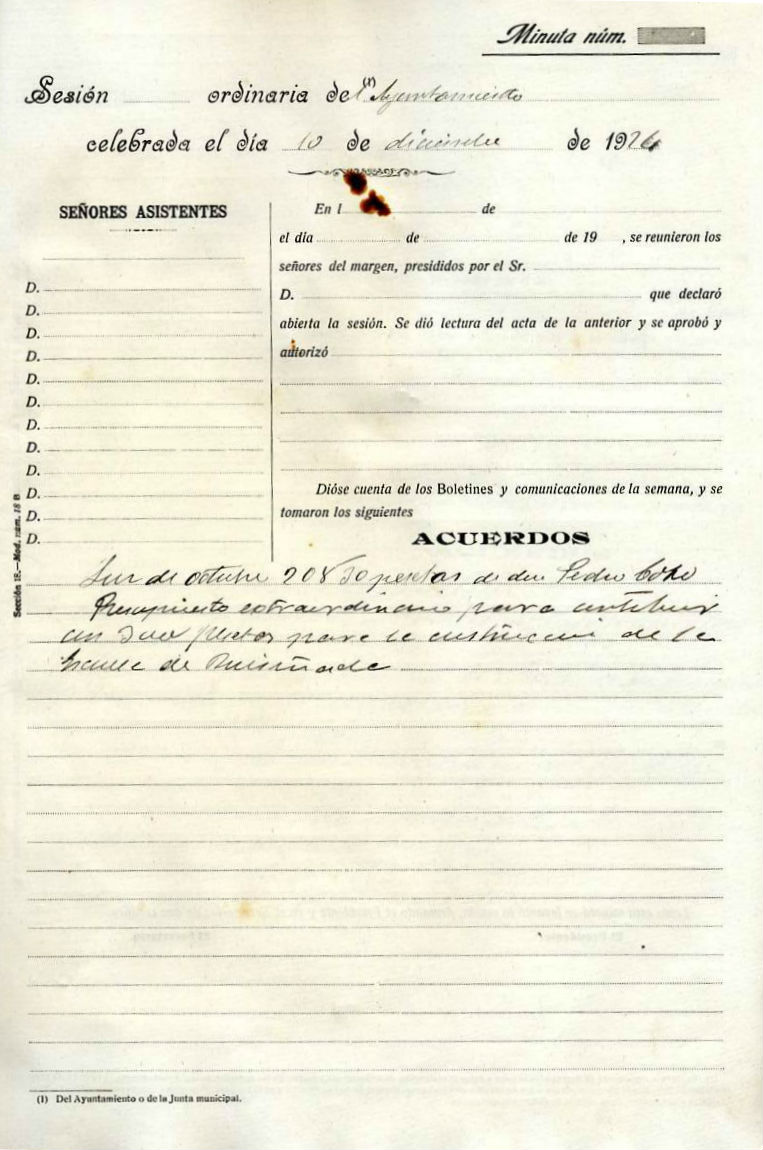 Minuta núm.
Sesión ordinaria de (1) l Ayuntamiento
celebrada el día 10 de diciembre de 1926
SEÑORES ASISTENTES
D.
D.
D.
D.
D.
D.
D.
D.
D.
D.
D.
D.
En l de
el día de de 19 , se reunieron los
señores del margen, presididos por el Sr.
D. que declaró
abierta la sesión. Se dió lectura del acta de la anterior y se aprobó y
autorizó
Dióse cuenta de los Boletines y comunicaciones de la semana, y se
tomaron los siguientes
ACUERDOS
Luz de octubre 208'50 pesetas de don Pedro
Presupuesto extraordinario para
pesetas para la construcción de la
Escuela de Ruiseñada
Sección 18.—Mod. núm. 18 B
(1) Del Ayuntamiento o de la Junta municipal.